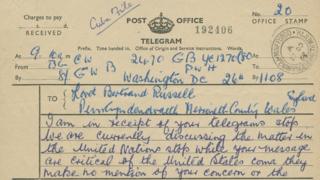 Charges to pay
s. d.
RECEIVED
Cuba File
POST OFFICE
192406
TELEGRAM
Prefix. Time handed in. Office of Origin and Service Instructions. Words.
No. 20
OFFICE STAMP
At 9.
From BG
By
CW 2470 GB
G W B PWH
Washington DC 26th 1108
TO
Lord Bertrand Russell
Wales
I am in receipt of your telegrams stop
we are currently discussing the matter in
the United Nations stop while your message
are critical of the United States come they
make no mention of your concern or the